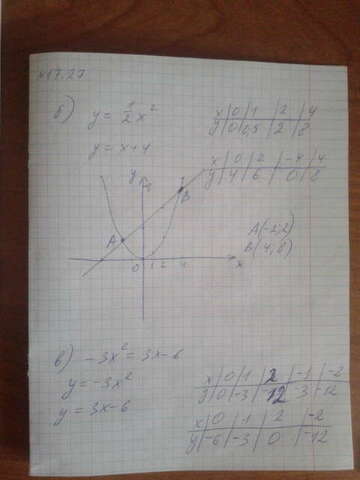 №17.27
б) y = 1/2 x²
x | 0 | 1 | 2 | 4
y | 0 | 0,5 | 2 | 8
y = x+4
x | 0 | 2 | -4 | 4
y | 4 | 6 | 0 | 8
y
B
A
0 1 2 4 x
A(-2;2)
B(4,8)
в) -3x² = 3x-6
y = -3x²
x | 0 | 1 | 2 | -1 | -2
y | 0 | -3 | -12 | -3 | -12
y = 3x-6
x | 0 | 1 | 2 | -2
y | -6 | -3 | 0 | -12